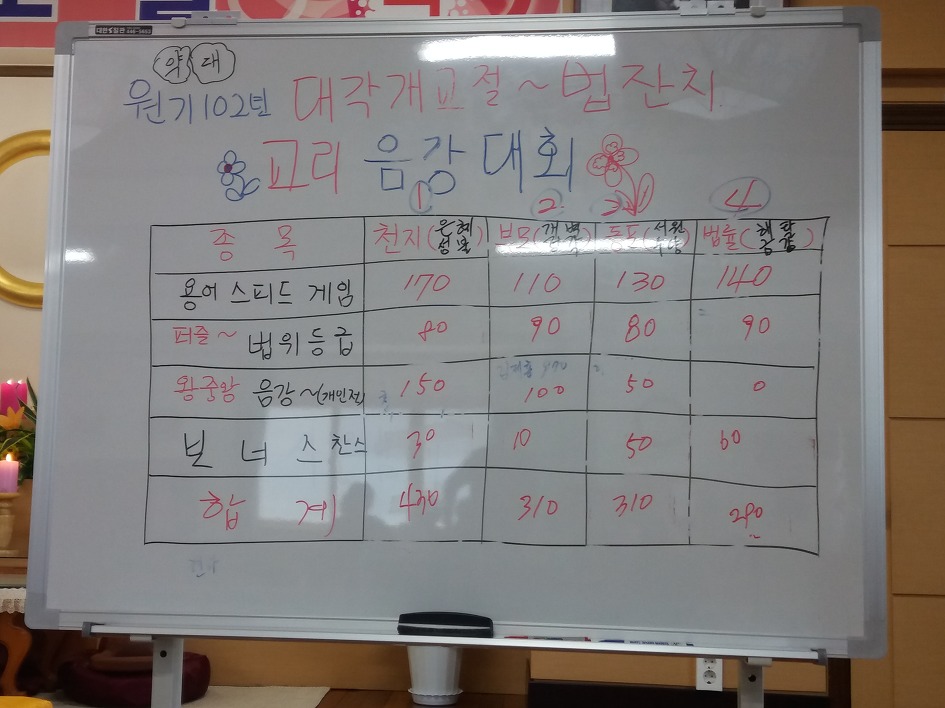 약 대
원기102년 대각개교절~법잔치
교리 음강 대회
1 2 3 4
종 목 천지(은혜 성날) 부모( 동포(서원 법률(
용어 스피드 게임 170 110 130 140
퍼즐~ 법위등급 80 90 80 90
왕중왕 음강~(개인전) 150 100 50 0
보 너 스 찬스 30 10 50 60
합 계 430 310 310 290